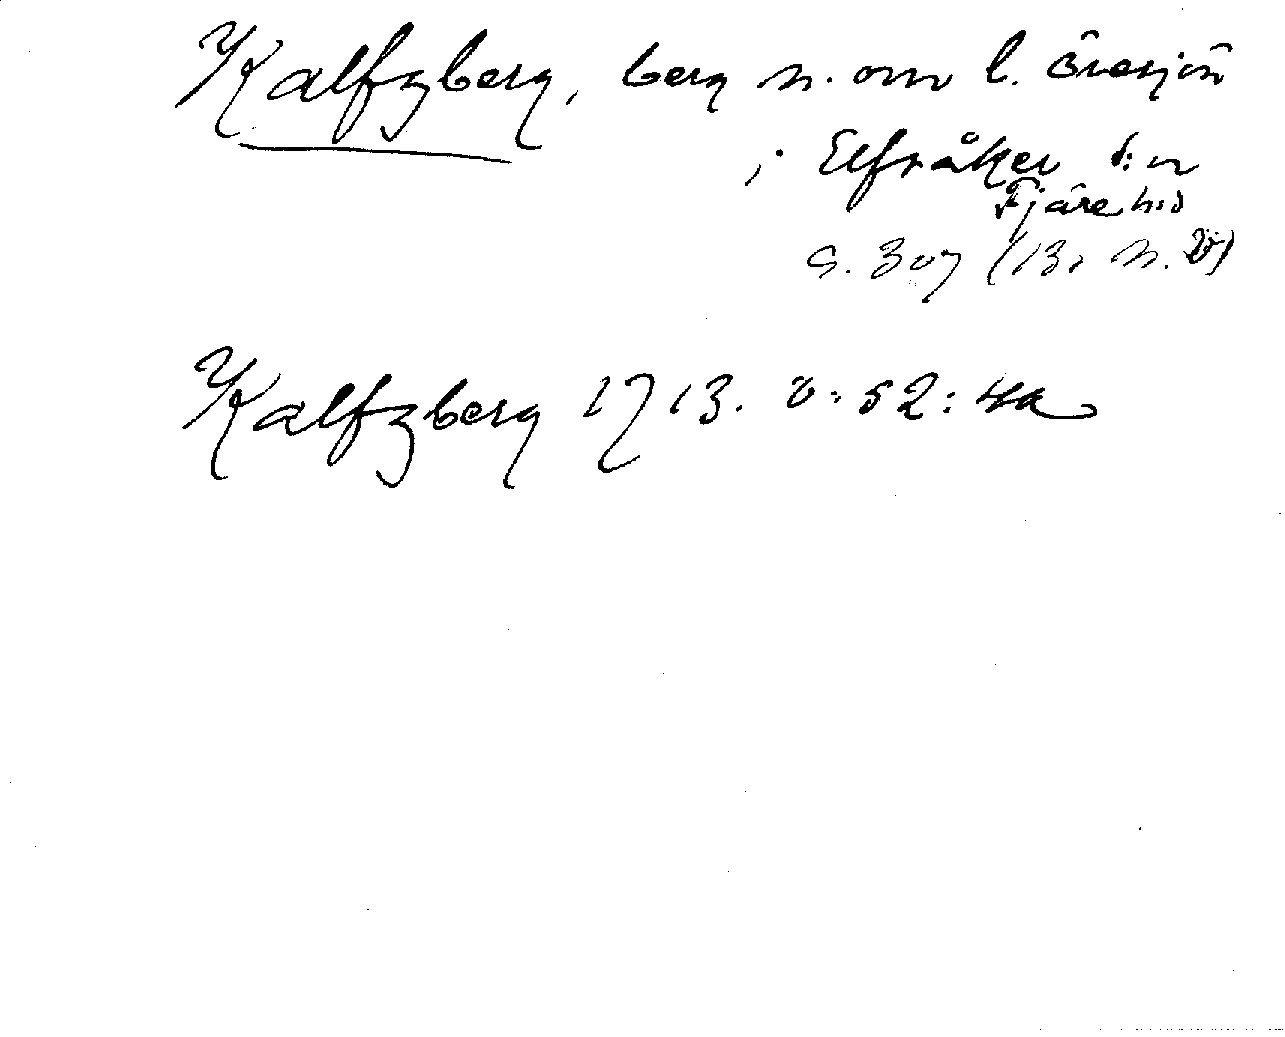 Kalfzberg, berg n. om l. Öresjön
i Elfsåker s:n
Fjäre h:d
G. 307 (13, N. V)
Kalfzberg 1713. v: 52: 4a